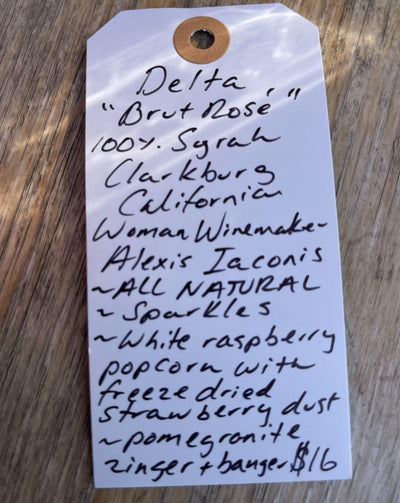 Delta
"Brut Rosé"
100%. Syrah
Clarkburg
California
Woman Winemaker
Alexis Iaconis
~ALL NATURAL
~Sparkles
~White raspberry
popcorn with
freeze dried
strawberry dust
~pomegranite
zinger + banger $16